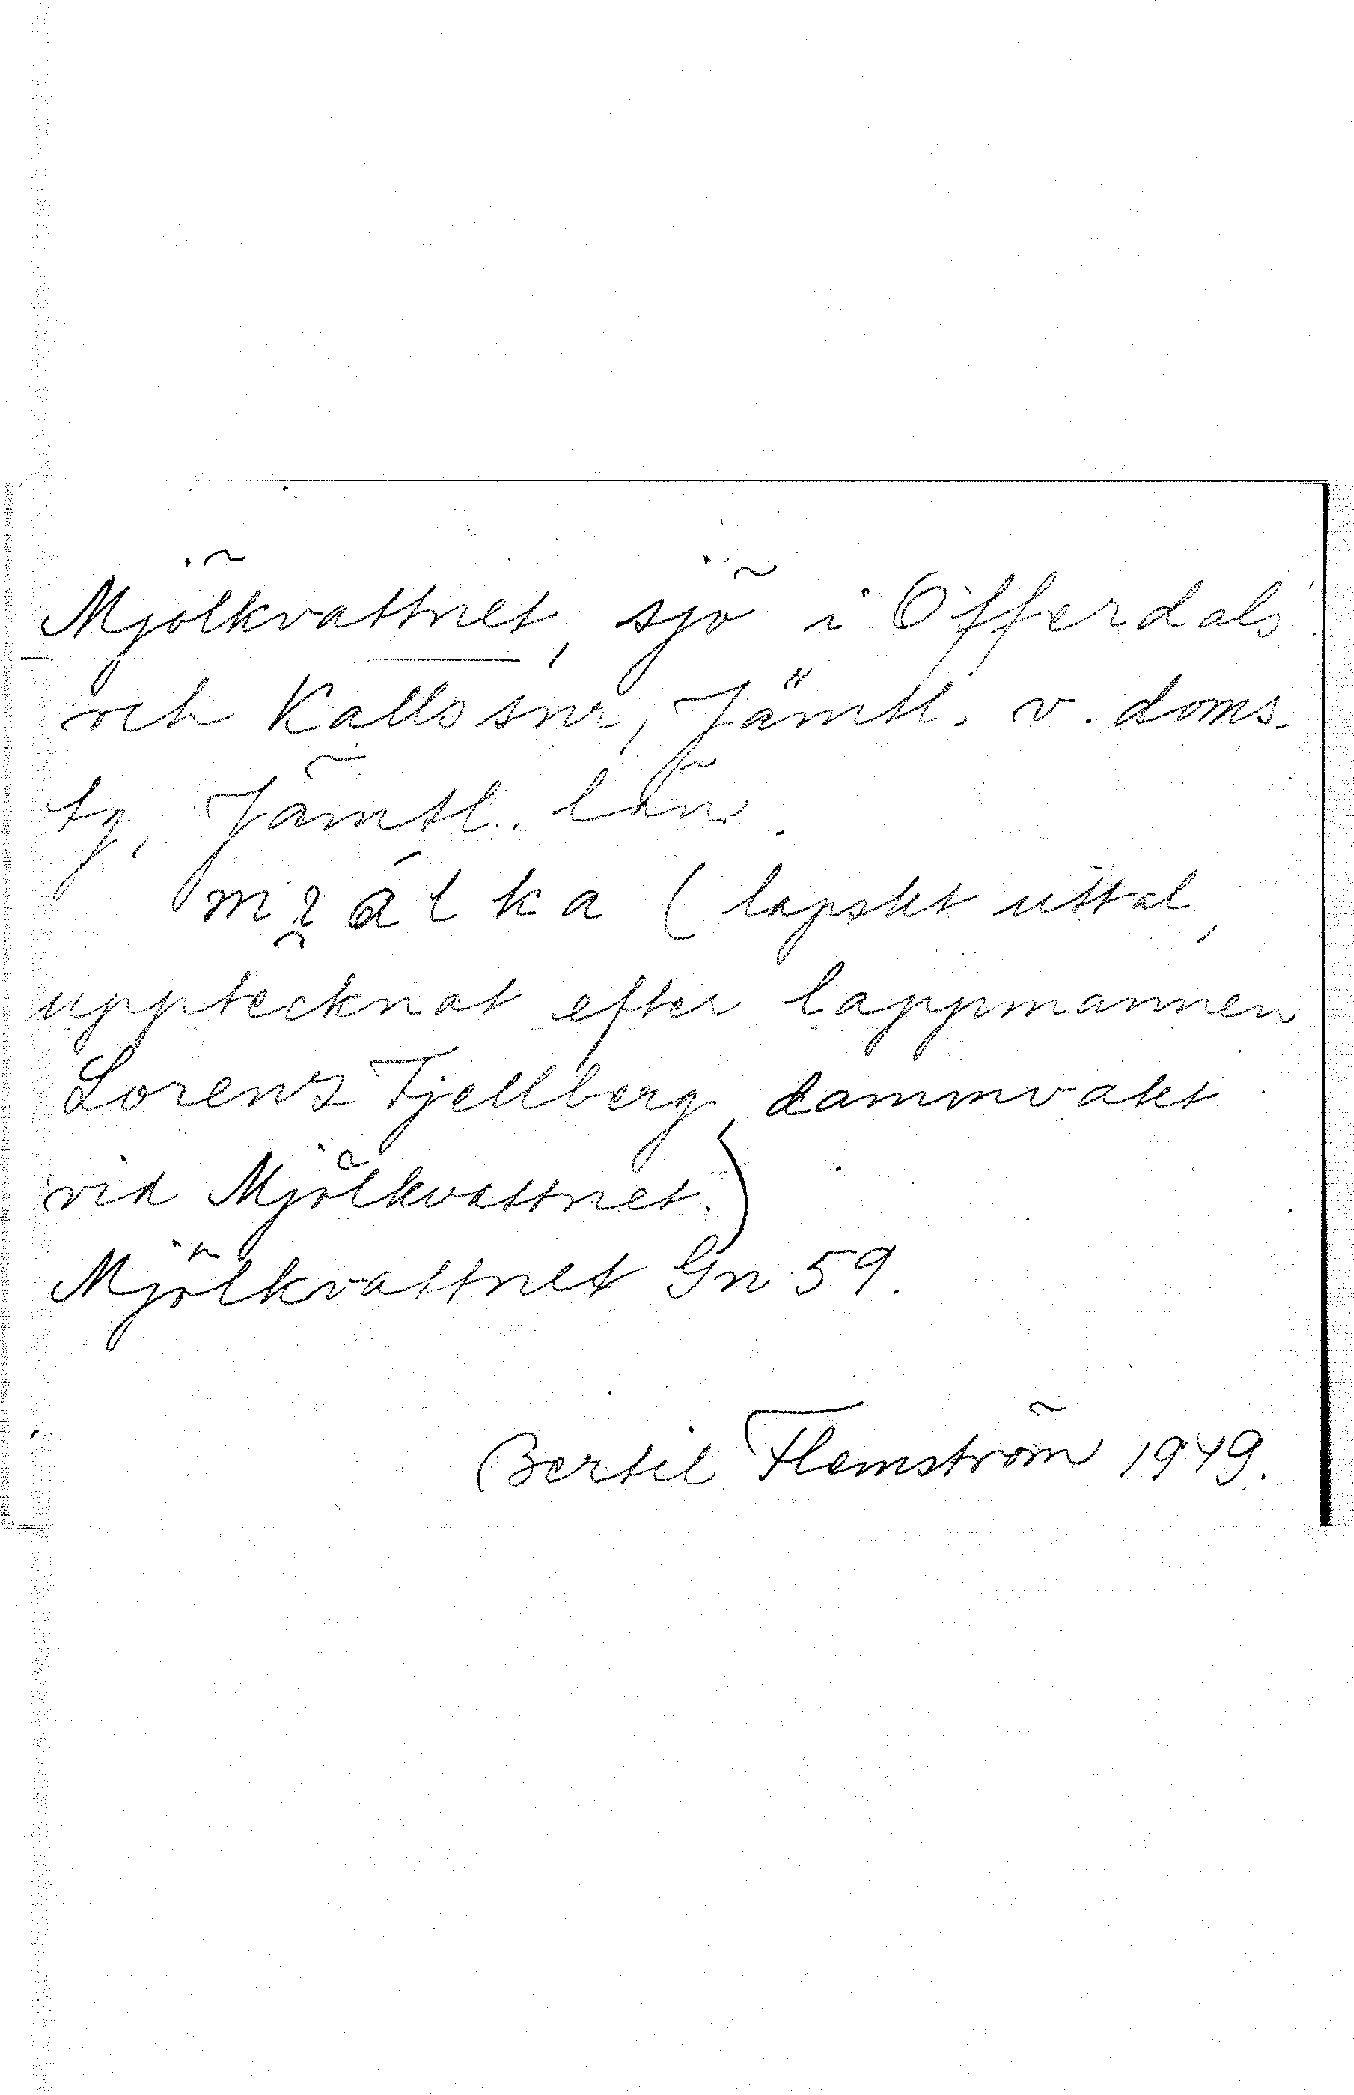 Mjölkvattnet, sjö i Offerdals
och Kalls snr, Jämtl. v. doms.
tg, Jämtl. län.
(lapskt uttal,
upptecknat efter lappmannen
Lorens Tjellberg, dammvakt
vid Mjölkvattnet.)
Mjölkvattnet Gn 59.
Bertil Flemström 1949.